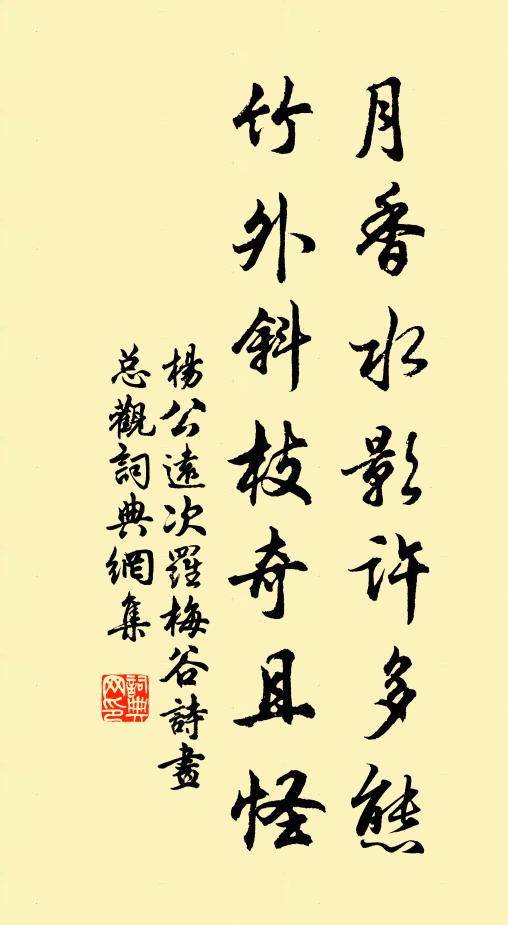 月香水影許多態
竹外斜枝奇且怪
楊公遠次羅梅谷詩畫
总觀詞典網集
詞典网印